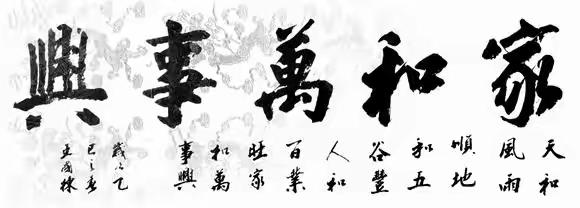 家和萬事興
天和
風雨
順地
和五
谷豐
人和
百業
旺家
和萬
事興
歲次乙
巳之春